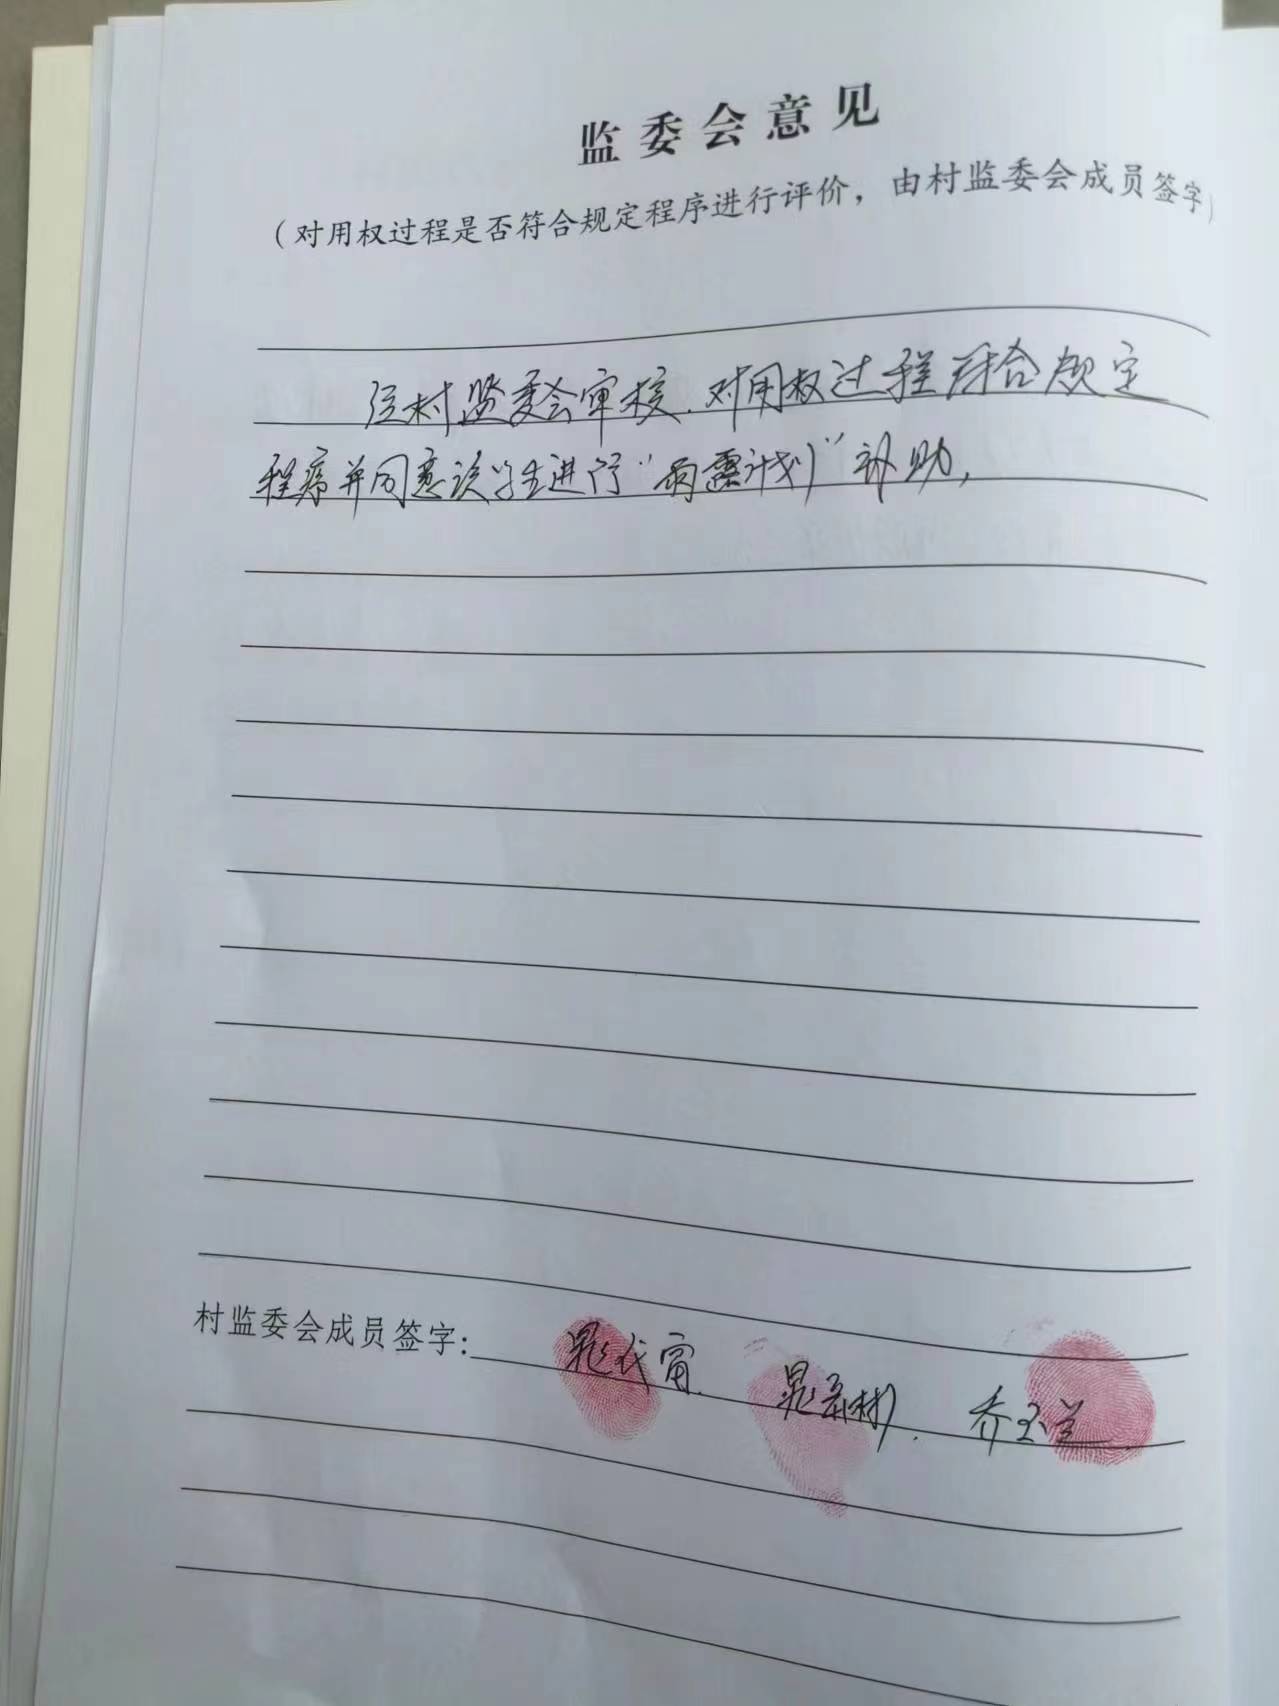 监委会意见
（对用权过程是否符合规定程序进行评价，由村监委会成员签字）
经村监委会审核.对用权过程符合规定
程序并同意该学生进行“雨露计划”补助,
村监委会成员签字: